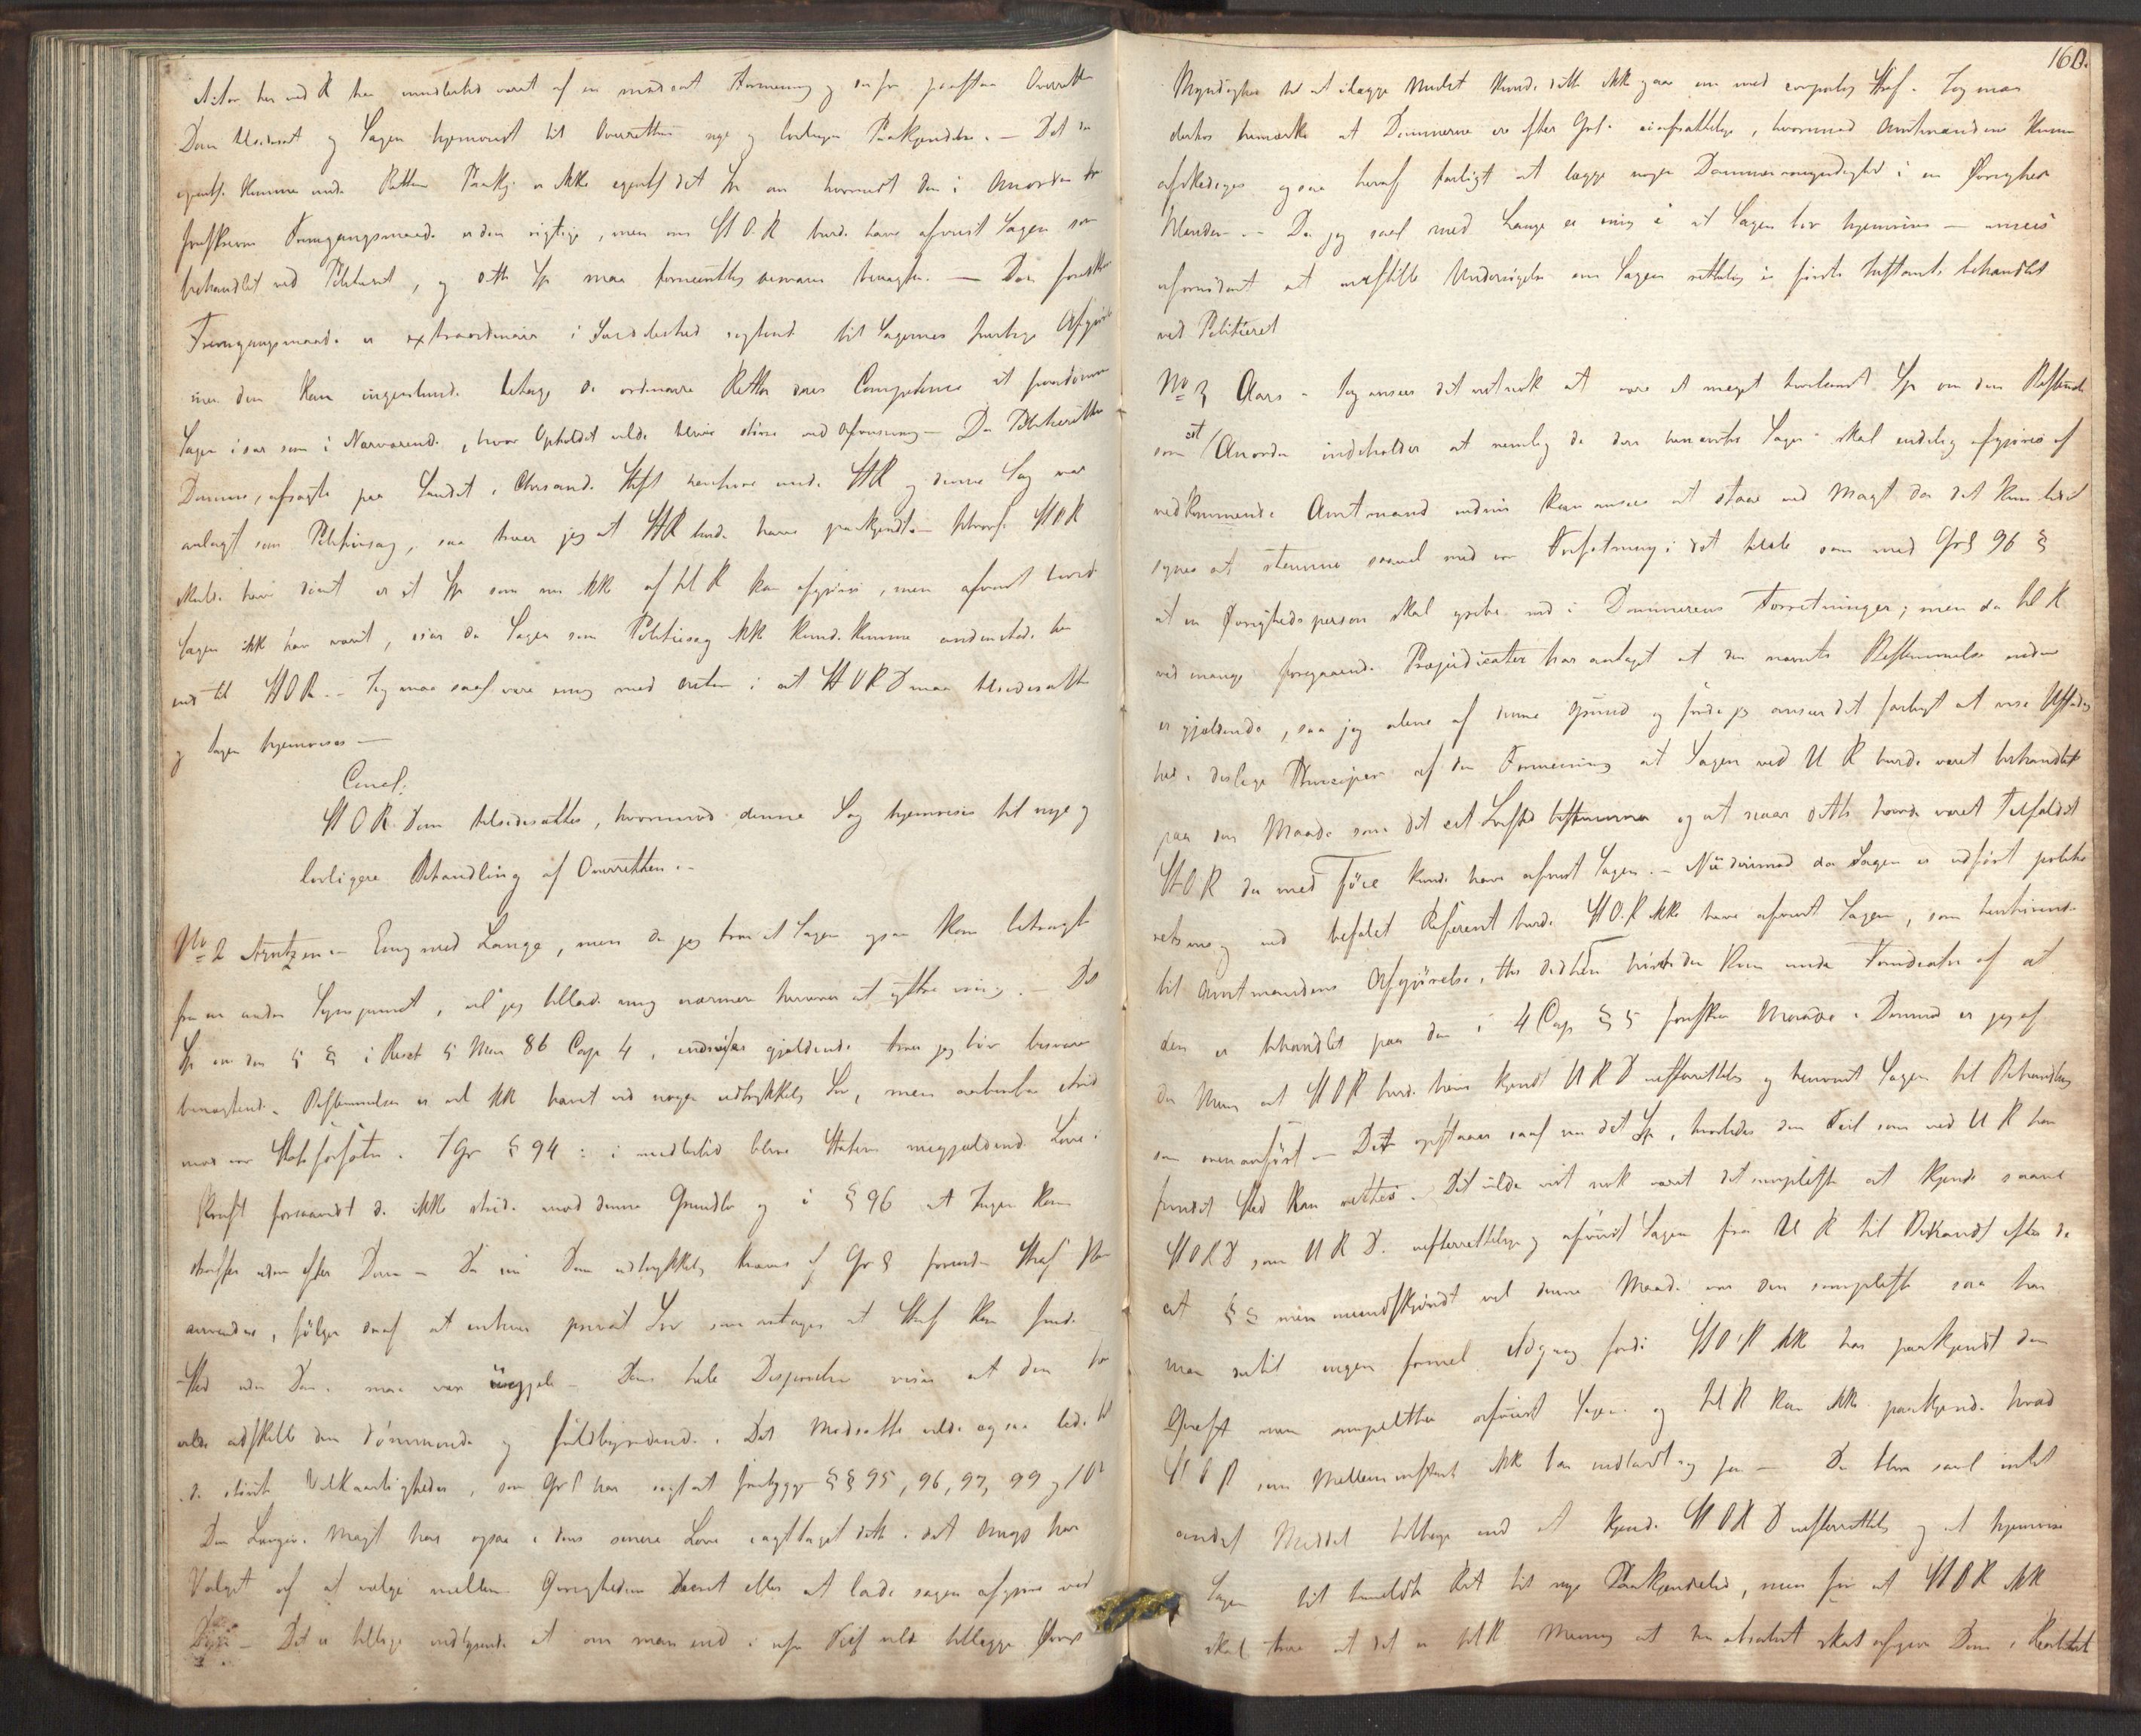 Actor her ved R har imidlertid været af en modsat Formening og derfor paastaaet Overretts
Dom tilsidesat og Sagen hjemvist til Overrettens nye og lovlige Paakjendelse. — Det der
egentl. kunne under Rettens Paakj. er ikke egentl. det Sp om hvorvidt den i Anordn
foreskrevne Fremgangsmaade er den rigtige, men om St O. R burde have afvist Sagen som
behandlet ved Politiret, og dette Sp maa formeentlig besvares benægtende. — Den foreskrevne
Fremgangsmaade er extraordinair i Særdeleshed sigtende til Sagernes hurtige Afgjørelse
men den kan ingenlunde betage de ordinaire Retter deres Competence at paadømme
Sager især som i Nærværende, hvor Opholdet vilde blive større ved Afvisning — Da Politiretts
Domme, afsagte paa Landet i Chrsand. Stift henhøre under StR og denne Sag var
anlagt som Politiesag, saa troer jeg at StR burde have paakjendt — hvorf. St O R
skulde have dømt er et Sp som nu ikke af H R kan afgjøres, men afvist burde
Sagen ikke have været, især da Sagen som Politiesag ikke kunde komme andensteds hen
end til St O R. — Jeg maa saal. være enig med Actor i at St O R D maa tilsidesættes
og Sagen hjemvises —
Concl:
St O R Dom tilsidesættes, hvorimod denne Sag hjemvises til nye og
lovligere Behandling af Overretten. —
No 2 Arntzen — Enig med Lange, men da jeg troer at Sagen ogsaa kan betragtes
fra en anden Synspunct, vil jeg tillade mig nærmere herover at yttre mig. — Det
Sp om den 5 § i Resct 5 Mai 86 Cap 4, endnu er gjældende troer jeg bør besvares
benægtende. Bestemmelsen er vel ikke hævet ved nogen udtrykkelig Lov, men aabenbar strid
mod vor Statsforfatn. I Gr § 94 : imidlertid blive Statens nugjældende Love i
Kraft forsaavidt de ikke stride mod denne Grundlov og i § 96 at Ingen kan
straffes uden efter Dom — Da nu Dom udtrykkelig kræves af Gr § forinden Straf kan
anvendes, følger deraf at enhver privat Lov som antager at Straf kan finde
Sted uden Dom. maa være ugyld. — Dens hele Disposition viser at den har
villet adskille den dømmende og fuldbyrdende. Det Modsatte vilde ogsaa lede til
de største Vilkaarligheder, som Gr l har søgt at forebygge §§ 95, 96, 97, 99 og 101
Den Lovgiv. Magt har ogsaa i dens senere Love iagttaget dette. det Angj har
Valget af at vælge mellem Øvrighedens Decret eller at lade sagen afgjøres ved
Dom — Det er tillige indlysende at om man end i visse Tilf vilde tillægge Øvrigh
160.
Myndighed til at ilægge Mulct kunde dette ikke gaae an med corporlig Straf. Jeg maa
derhos bemærke at Dommerne ere efter Grl. uafsættelige, hvorimod Amtmændene kunne
afskediges ogsaa heraf farligt at lægge nogen Dommermyndighed i en Øvrigheds
Hænder. — Da jeg saal. med Lange er enig i at Sagen bør hjemvises — ansees
ufornødent at anstille Undersøgelse om Sagen retteligen i første Instants behandlet
ved Politieret
No 3 Aars — Jeg ansees det vistnok at være et meget tvivlsomt Sp om den Bestemmelse
som cit Anordn indeholder at nemlig de der benævnte Sager skal endelig afgjøres af
vedkommende Amtmand endnu kan ansees at staae ved Magt da det kun lidet
synes at stemme saavel med vor Forfatning i det hele som med Grl 96 §
at en Øvrighedsperson skal gribe ind i Dommerens Forretninger; men da H R
ved mange foregaaende Præjudicater har antaget at den nævnte Bestemmelse endnu
er gjældende, saa jeg alene af denne Grund og fordi jeg anseer det farligt at vise Ustadig-
hed i deslige Principer af den Formening at Sagen ved U R burde været behandlet
paa den Maade som det cit Lovsted bestemmer og at naar dette havde været Tilfældet
St O R da med Føie kunde have afvist Sagen. — Nu derimod da Sagen er udført politie
retsviis og ved befalet Referent burde St O. R ikke have afvist Sagen, som henhørende
til Amtmandens Afgjørelse, thi hører den kun under Forudsætn af at
den er behandlet paa den i 4 Cap § 5 foreskr Maade. Derimod er jeg af
den Mening at St O R burde have kjendt U R D uefterrettelig og hjemvist Sagen til Behandling
som ovenanført — Det opstaaer saal. nu det Sp, hvorledes den Feil som ved U R har
fundet Sted kan rettes. Det vilde vist nok været det simpleste at kjende saavel
St O R D som U R D. uefterrettelige og afviist Sagen fra U R til Behandl efter de
cit §§ men uundskjøndt vel denne Maade var den simpleste saa har
man dertil ingen formel Adgang fordi St O. R ikke har paakjendt den
men simpelthen afviist Sagen og H R kan ikke paakjende hvad
St O R som Mellemintstants ikke har indladt sig paa — Der bliver saal. intet
andet Middel tilbage end at kjende St O R D uefterrettelig og at hjemvise
Sagen til bemeldte Ret til nye Paakjendelse, men for at St O R ikke
skal troe at det er H R Mening at den absolut skal afgive Dom i Realitet